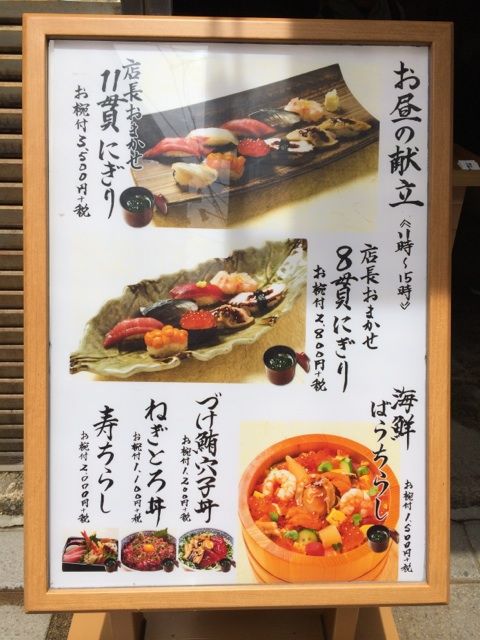 お昼の献立
《11時～15時》
店長おまかせ
11貫にぎり
お椀付3,500円+税
店長おまかせ
8貫にぎり
お椀付2,800円+税
海鮮
ばらちらし
お椀付1,500円+税
づけ鮪穴子丼
お椀付1,200円+税
ねぎとろ丼
お椀付1,100円+税
寿ちらし
お椀付2,000円+税